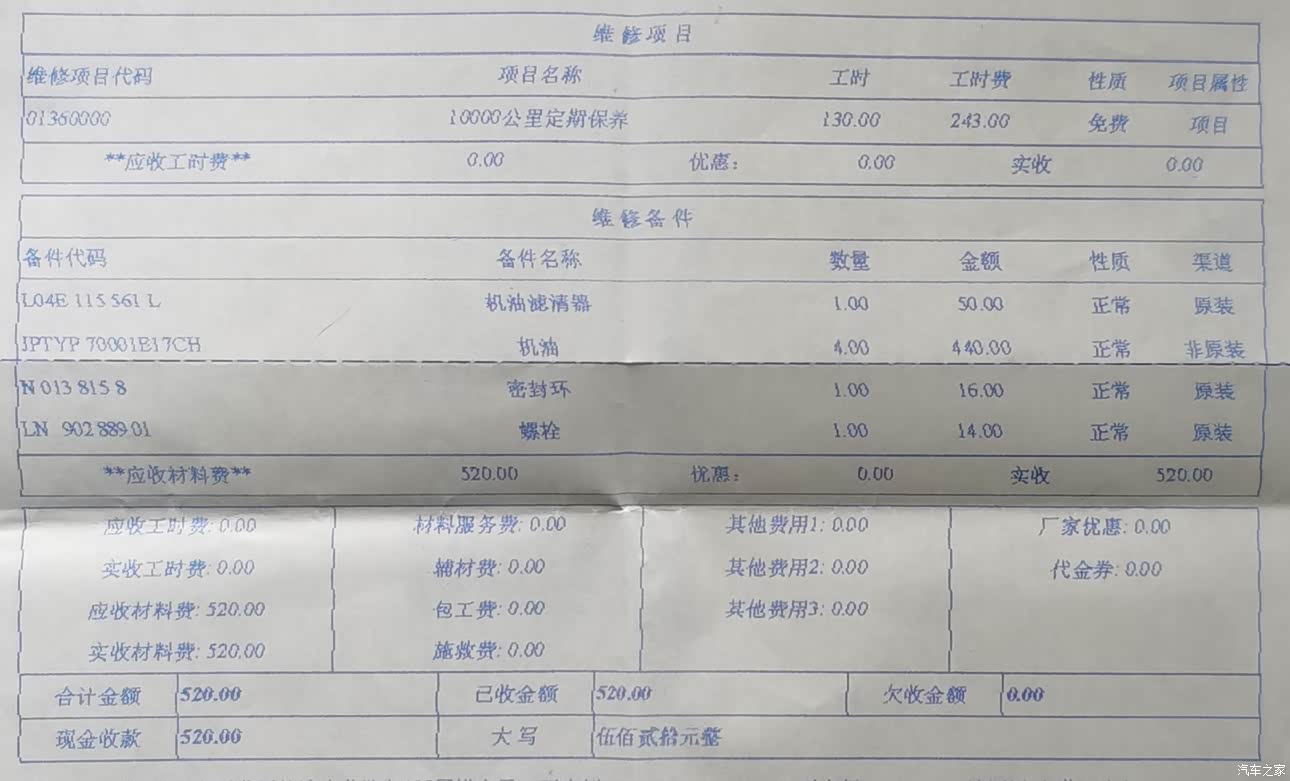 维修项目
维修项目代码 项目名称 工时 工时费 性质 项目属性
01360000 10000公里定期保养 130.00 243.00 免费 项目
**应收工时费** 0.00 优惠： 0.00 实收 0.00
维修备件
备件代码 备件名称 数量 金额 性质 渠道
L04E 115 561 L 机油滤清器 1.00 50.00 正常 原装
JPTYP 70001E17CH 机油 4.00 440.00 正常 非原装
N 013 815 8 密封环 1.00 16.00 正常 原装
LN 902 889 01 螺栓 1.00 14.00 正常 原装
**应收材料费** 520.00 优惠： 0.00 实收 520.00
应收工时费: 0.00 材料服务费: 0.00 其他费用1: 0.00 厂家优惠: 0.00
实收工时费: 0.00 辅材费: 0.00 其他费用2: 0.00 代金券: 0.00
应收材料费: 520.00 包工费: 0.00 其他费用3: 0.00
实收材料费: 520.00 施救费: 0.00
合计金额 520.00 已收金额 520.00 欠收金额 0.00
现金收款 520.00 大写 伍佰贰拾元整
汽车之家